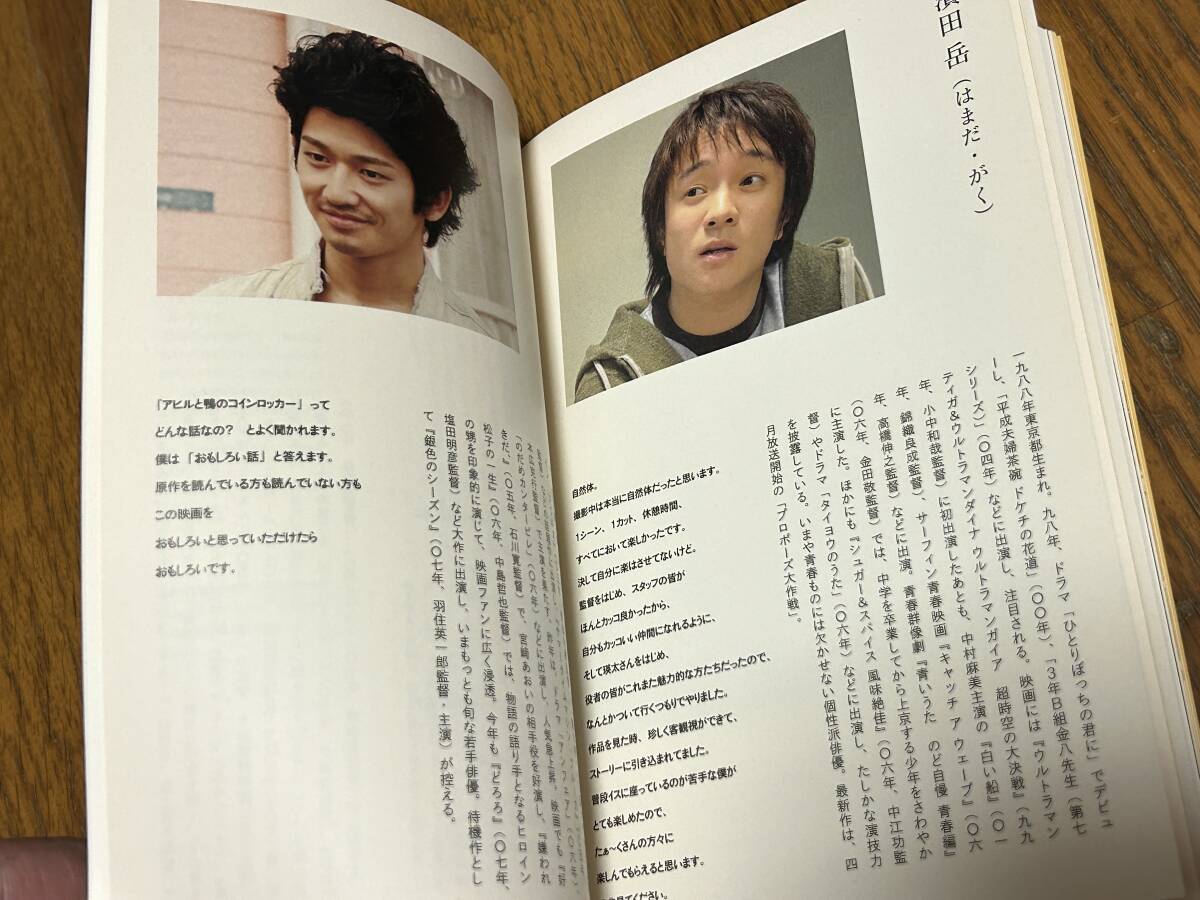 濱田 岳（はまだ・がく）
一九八八年東京都生まれ。九八年、ドラマ「ひとりぼっちの君に」でデビュ
ーし、「平成夫婦茶碗 ドケチの花道」（〇〇年）、「3年B組金八先生（第七
シリーズ）」（〇四年）などに出演し、注目される。映画には『ウルトラマン
ティガ＆ウルトラマンダイナ ウルトラマンガイア 超時空の大決戦』（九九
年、小中和哉監督）に初出演したあとも、中村麻美主演の『白い船』（〇一
年、錦織良成監督）、サーフィン青春映画『キャッチ ア ウェーブ』（〇六
年、高橋伸之監督）などに出演。青春群像劇『青いうた のど自慢 青春編』
（〇六年、金田敬監督）では、中学を卒業してから上京する少年をさわやか
に主演した。ほかにも『シュガー＆スパイス 風味絶佳』（〇六年、中江功監
督）やドラマ「タイヨウのうた」（〇六年）などに出演し、たしかな演技力
を披露している。いまや青春ものには欠かせない個性派俳優。最新作は、四
月放送開始の「プロポーズ大作戦」。
自然体。
撮影中は本当に自然体だったと思います。
1シーン、1カット、休憩時間、
すべてにおいて楽しかったです。
決して自分に楽はさせてないけど。
監督をはじめ、スタッフの皆が
ほんとカッコ良かったから、
自分もカッコいい仲間になれるように、
そして瑛太さんをはじめ、
役者の皆がこれまた魅力的な方たちだったので、
なんとかついて行くつもりでやりました。
作品を見た時、珍しく客観視ができて、
ストーリーに引き込まれてました。
普段イスに座っているのが苦手な僕が
とても楽しめたので、
たぁ〜くさんの方々に
楽しんでもらえると思います。
見てください。
「のだめカンタービレ」（〇六年）などに出演し、人気急上昇。映画でも『好
きだ、』（〇五年、石川寛監督）で、宮崎あおいの相手役を好演し、『嫌われ
松子の一生』（〇六年、中島哲也監督）では、物語の語り手となるヒロイン
の甥を印象的に演じて、映画ファンに広く浸透。今年も『どろろ』（〇七年、
塩田明彦監督）など大作に出演し、いまもっとも旬な若手俳優。待機作とし
て『銀色のシーズン』（〇七年、羽住英一郎監督・主演）が控える。
「アヒルと鴨のコインロッカー」って
どんな話なの？ とよく聞かれます。
僕は「おもしろい話」と答えます。
原作を読んでいる方も読んでいない方も
この映画を
おもしろいと思っていただけたら
おもしろいです。